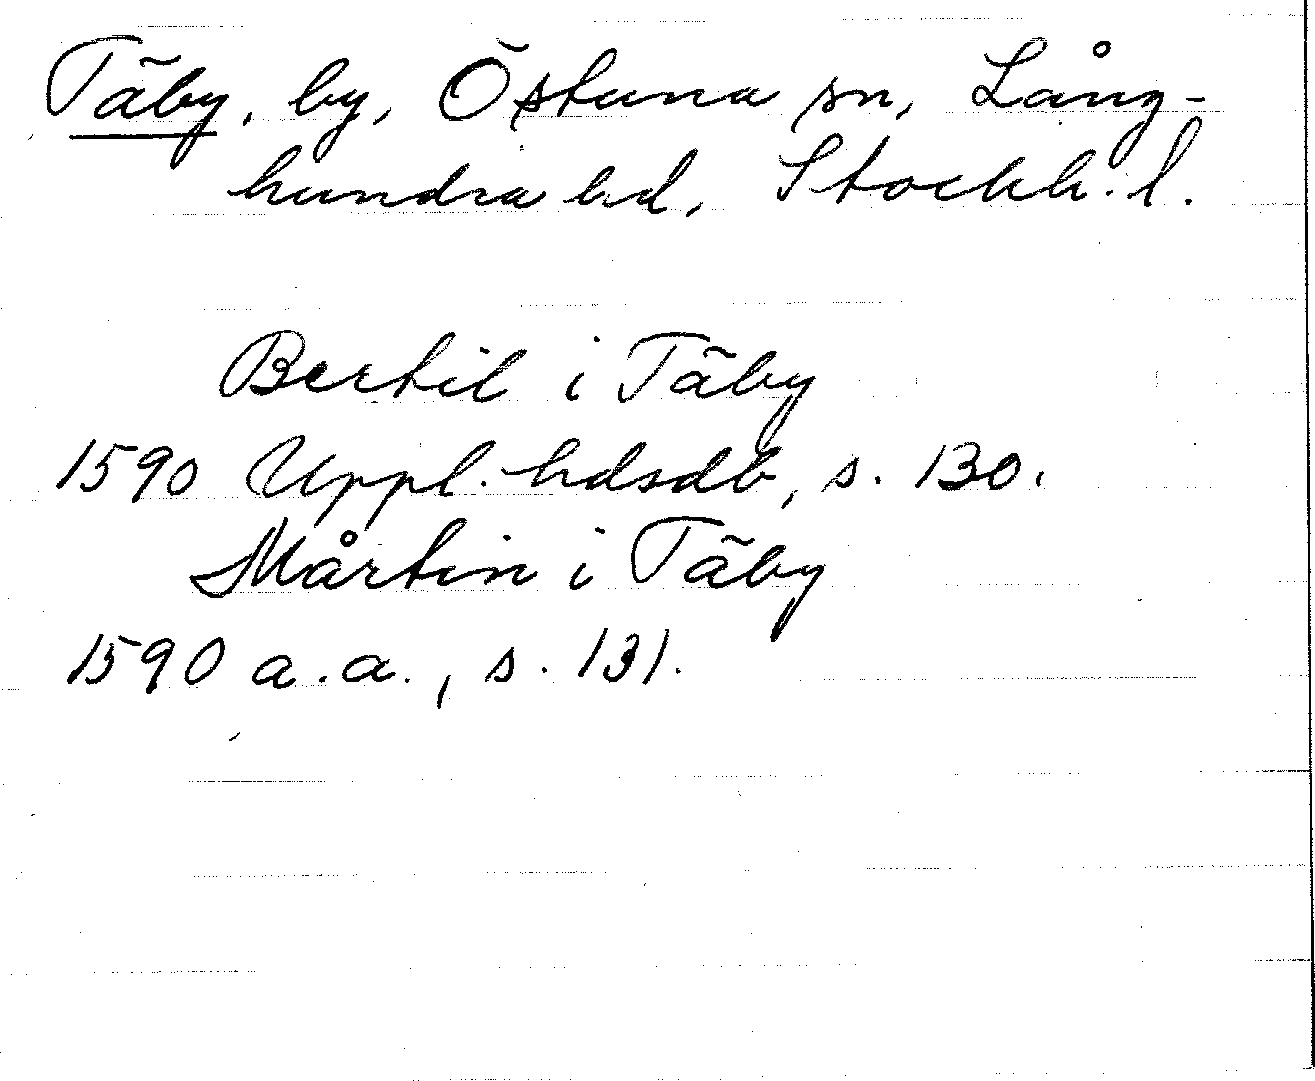 Täby, by, Östuna sn, Lång-
hundra hd, Stockh. l.
Bertil i Täby
1590 Uppl. hdsdb, s. 130.
Mårtin i Täby
1590 a.a., s. 131.